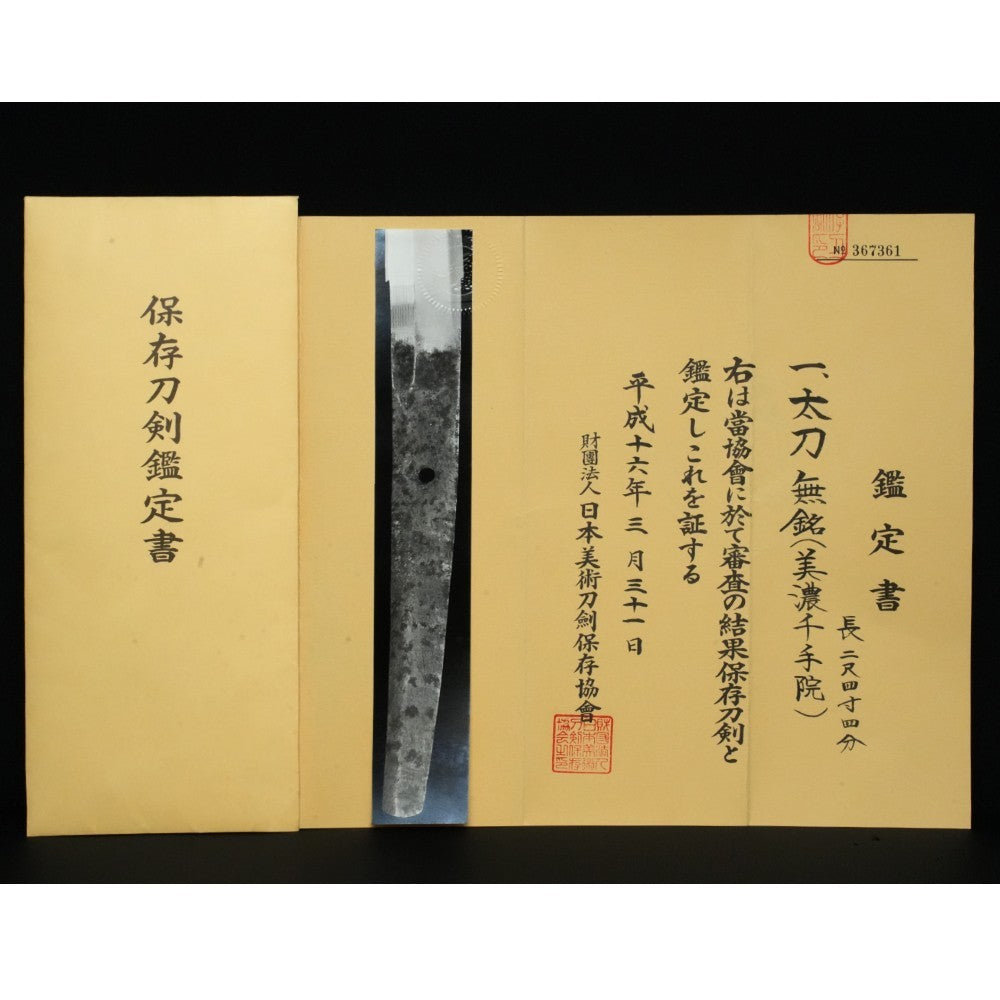 保存刀剣鑑定書
№ 367361
鑑定書
長二尺四寸四分
一、太刀 無銘(美濃千手院)
右は當協會に於て審査の結果保存刀剣と
鑑定しこれを証する
平成十六年三月三十一日
財團法人日本美術刀劍保存協會